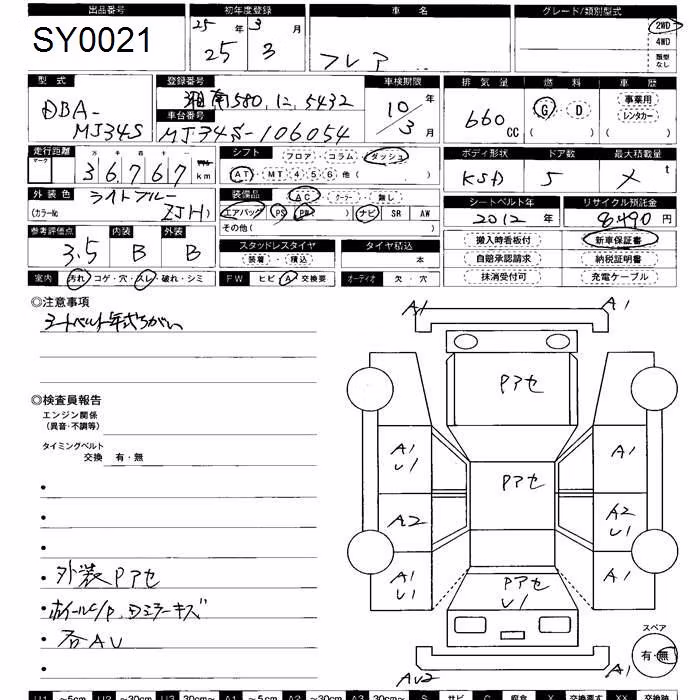 出品番号 初年度登録 車名 グレード/類別型式
SY0021 25年 3月 フレア 2WD
25 3 4WD
類型なし
型式 登録番号 車検期限 排気量 燃料 車歴
DBA-MJ34S 湘南580,に,5432 10年 3月 660CC G・D ( ) 事業用 レンタカー ( )
車台番号
MJ34S-106054
走行距離 シフト フロア・コラム・ダッシュ ボディ形状 ドア数 最大積載量
マーク 十 万 千 百 十
36767km AT・MT 4 5 6 他( ) 5 t
外装色 ライトブルー 装備品 AC・クーラー・無し シートベルト年 リサイクル預託金
(カラーNo ZJH) エアバッグ(PS PW) ナビ SR AW 2012年 8,490円
その他( )
参考評価点 内装 外装 スタッドレスタイヤ タイヤ積込 搬入時看板付 新車保証書
3.5 B B 装着・積込 本 自賠承認請求 納税証明書
室内 汚れ・コゲ・穴・スレ・破れ・シミ FW ヒビ・A・交換要 オーディオ 欠・穴 抹消受付可 充電ケーブル
◎注意事項
シートベルト年式ちがい
A1 A1
Pアセ
◎検査員報告
エンジン関係
(異音・不調等)
タイミングベルト
交換 有・無
A1 U1 Pアセ A1
A2 A2 U1
・外装Pアセ
A1 U1 Pアセ U1 A1
・ホイールC/P,Dミラーキズ
・右AU
スペア
有・無
AU2 A1
U1 ~5cm U2 ~30cm U3 30cm~ A1 ~5cm A2 ~30cm A3 30cm~ S サビ C 腐食 X 交換要す XX 交換跡